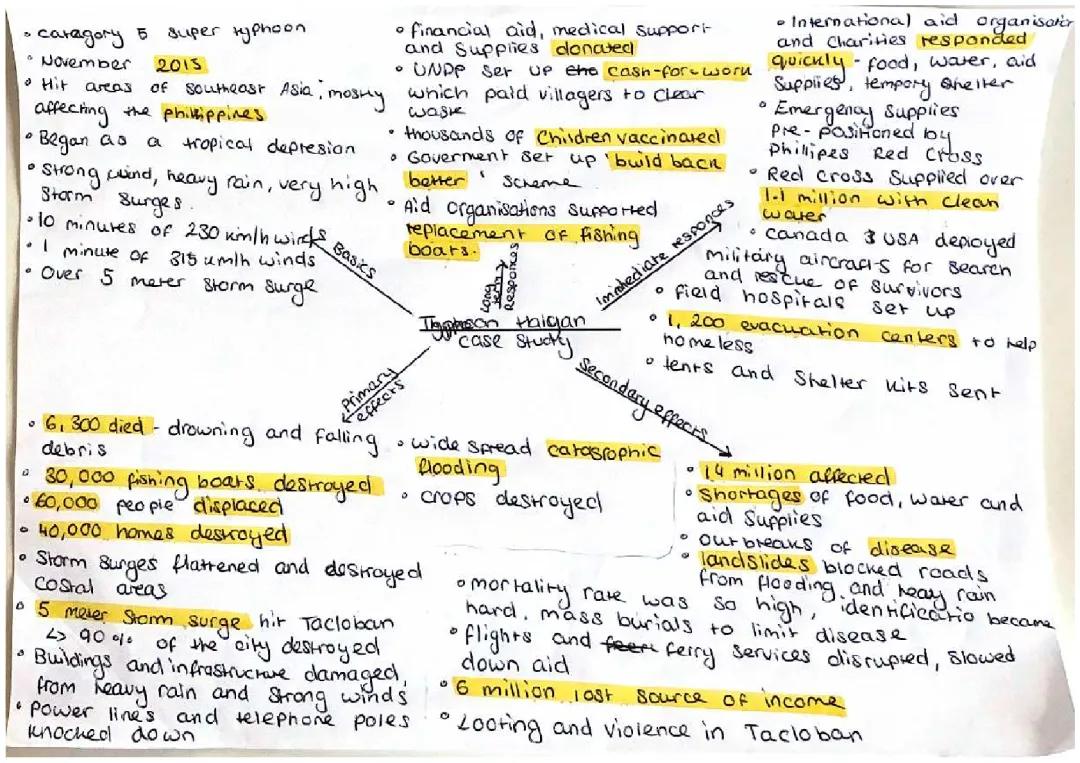 • category 5 super typhoon
• November 2013
• Hit areas of southeast Asia, mostly
affecting the phillippines
• Began as a tropical depresion
• Strong wind, heavy rain, very high
Storm Surges.
• 10 minutes of 230 km/h winds
• 1 minute of 315 km/h winds
• Over 5 meter storm surge
Basics
• financial aid, medical support
and Supplies donated
• UNDP set up the cash-for-work
which paid villagers to clear
waste
• thousands of Children vaccinated
• Goverment set up 'build back
better' scheme
• Aid organisations supported
replacement of fishing
boats.
Long term
Responces
• International aid organisation
and Charities responded
quickly - food, water, aid
Supplies, tempory shelter
• Emergency Supplies
pre-positioned by
phillipes Red Cross
• Red Cross Supplied over
1.1 million with clean
water
• Canada & USA deployed
military aircrafts for search
and rescue of survivors
• field hospitals set up
• 1,200 evacuation centers to help
homeless
• tents and Shelter kits sent
Immediate responces
Typhoon Haiyan
case study
Primary
effects
• 6,300 died - drowning and falling
debris
• 30,000 fishing boats destroyed
• 60,000 people displaced
• 40,000 homes destroyed
• Storm Surges flattened and destroyed
costal areas
• 5 meter Storm surge hit Tacloban
↳ 90% of the city destroyed
• Buildings and infrastructure damaged,
from heavy rain and strong winds
• power lines and telephone poles
knocked down
• wide spread catasrophic
flooding
• crops destroyed
Secondary effects
• 14 million affected
• Shortages of food, water and
aid Supplies
• outbreaks of disease
• landslides blocked roads
from flooding and heavy rain
• mortality rate was so high, identificatio became
hard. mass burials to limit disease
• flights and ferry services disrupted, slowed
down aid
• 6 million lost source of income
• Looting and violence in Tacloban